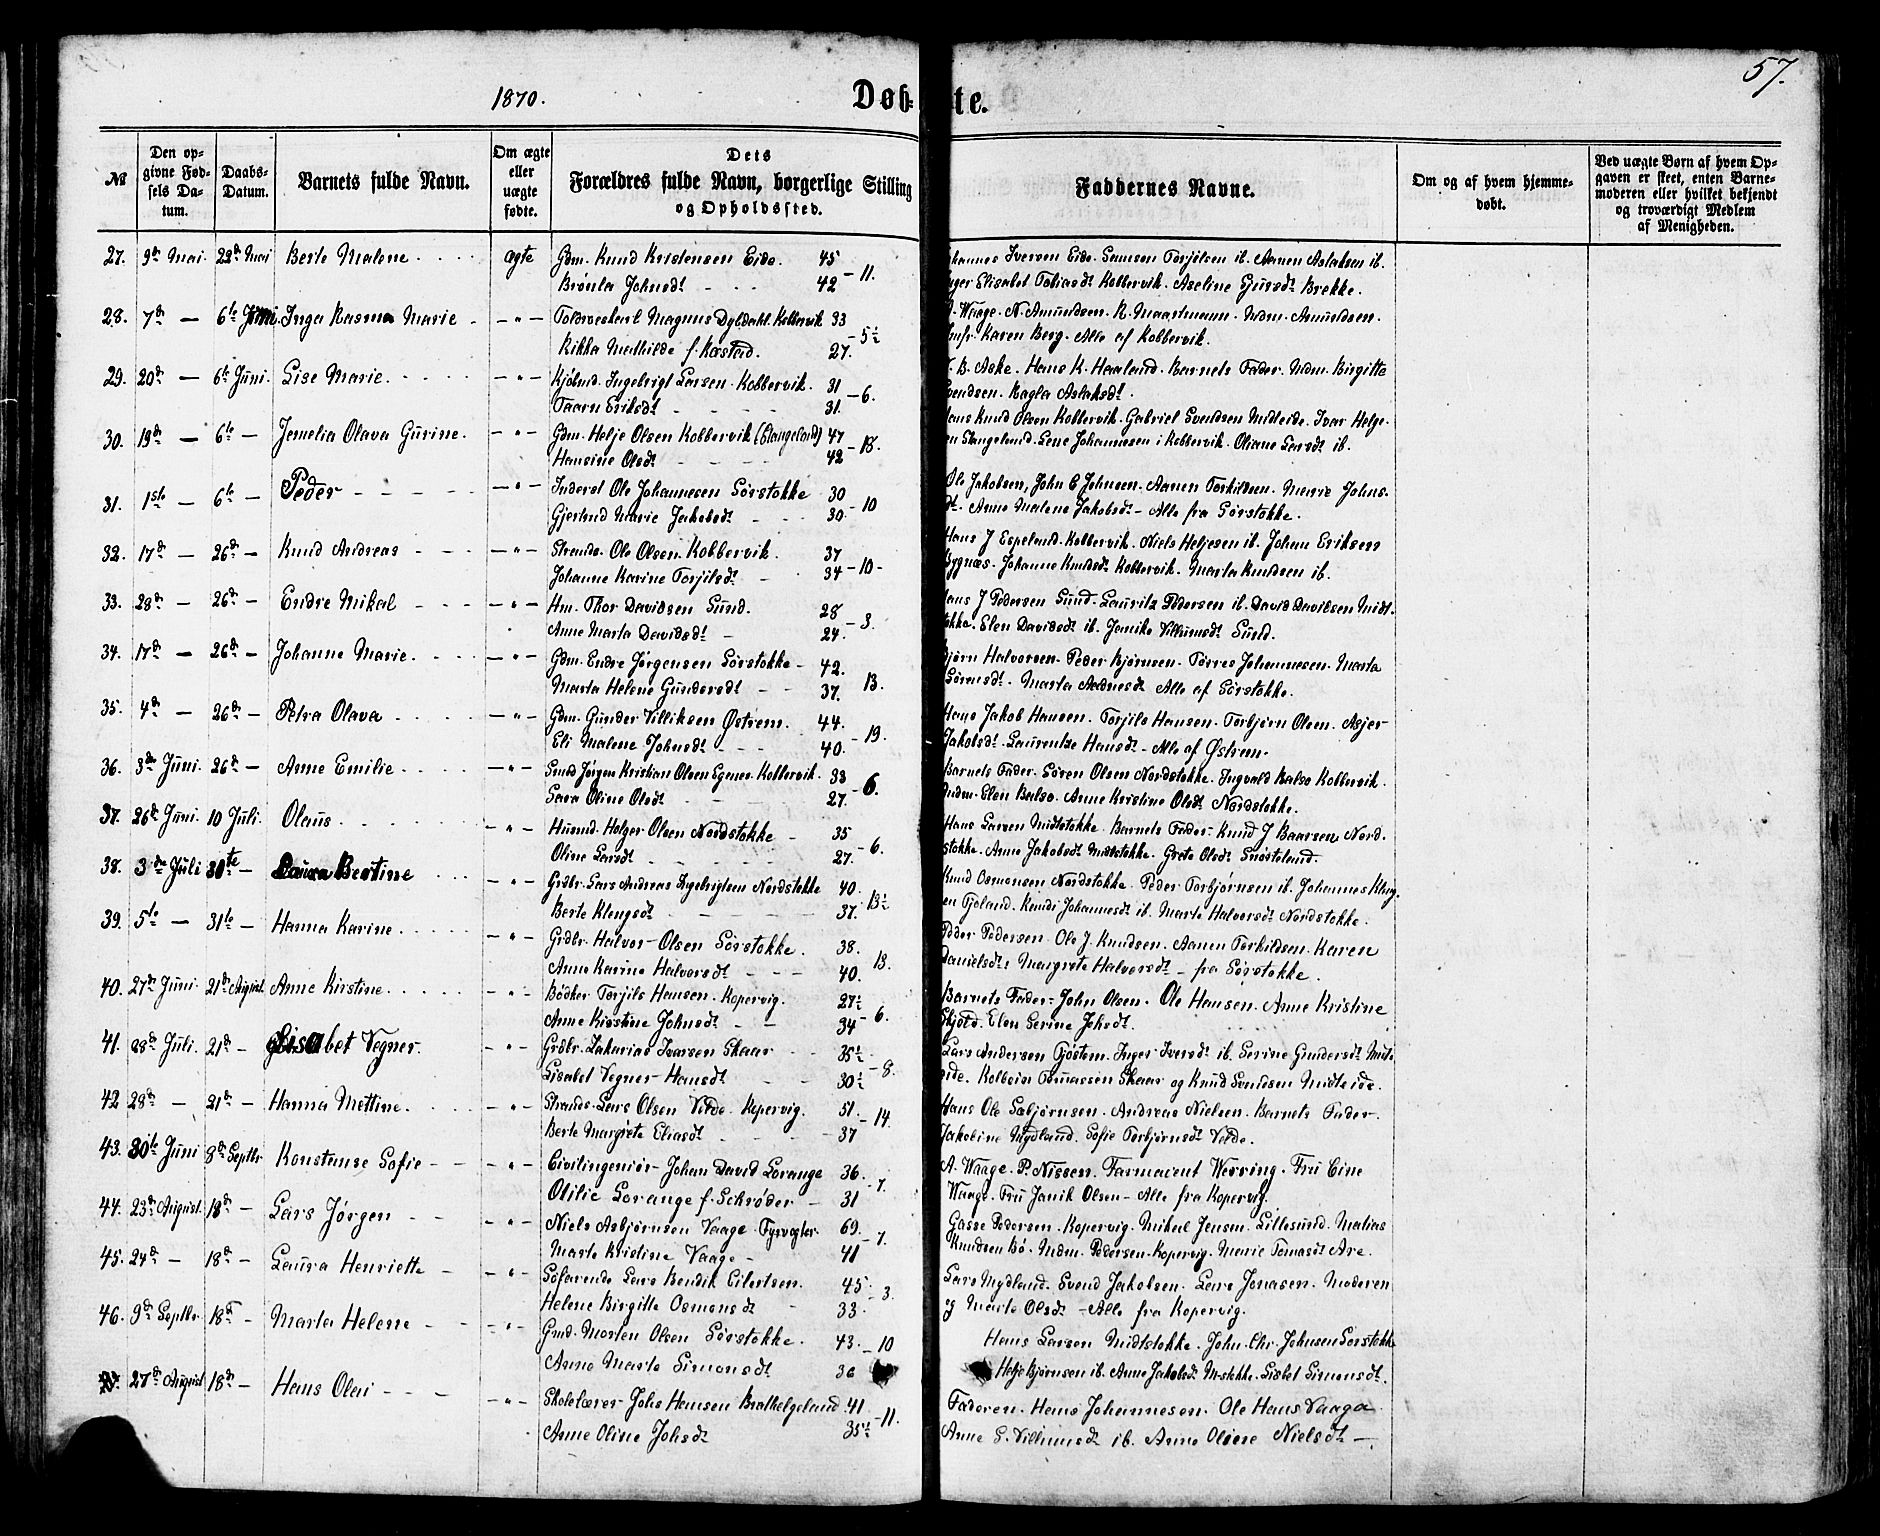 1870.
Døb-
te.
57.
№
Den op-
givne Fød-
sels Da-
tum.
Daabs-
Datum.
Barnets fulde Navn.
Om ægte
eller
uægte
fødte.
Dets
Forældres fulde Navn, borgerlige Stilling
og Opholdssted.
Faddernes Navne.
Om og af hvem hjemme-
døbt.
Ved uægte Børn af hvem Op-
gaven er skeet, enten Barne-
moderen eller hvilket bekjendt
og troværdigt Medlem
af Menigheden.
27. 9de Mai. 22de Mai Berte Malene ægte Gbm. Knud Kristensen Eide. 45
Brønla Johnsdt 42 – 11.
Iversen Eide. Samson Torjilsen ib. Aanen Aslaksen ib.
Elisabet Tobiasdt Kobbervik. Aseline Gjursdt Brekke.
28. 7de — 6te Juni. Inga Rasma Marie – " – Toldveskarl Magnus Dyldahl. Kobbervik 33
Rikka Mathilde f. Kastad. 27. – 5½
Waage. N. Amundsen. R. Maartmann. Mdm. Amundsen.
Karen Berg. Alle af Kobbervik.
29. 20de — 6te Juni. Lise Marie. – " – Kjøbmd. Ingebrigt Larsen. Kobbervik. 31
Taarn Eriksdt 31. – 6.
B. Aske. Hans K. Haaland. Barnets Fader. Mdm. Birgitte
Svendsen. Ragla Aslaksdt.
30. 19de — 6te — Jemelia Olava Gurine. – " – Gbm. Helje Olsen Kobbervik (Stangeland) 47
Hansine Olsdt 42 – 18.
Hans Knud Olsen Kobbervik. Gabriel Svendsen Midteide. Ivar Helge-
en Stangeland. Lene Johannesen i Kobbervik. Oliane Larsdt ib.
31. 1ste — 6te — Peder – " – Inderst Ole Johannesen Sørstokke 30
Gjertrud Marie Jakobsdt 30. – 10
Ole Jakobsen, John C Johnsen. Aanen Torkildsen. Marie Johns-
dt. Anne Malene Jakobsdt – Alle fra Sørstokke.
32. 17de — 26de — Knud Andreas – " – Strands. Ole Olsen. Kobbervik. 37
Johanne Karine Torjilsdt 34 – 10 –
Hans J Espeland. Kobbervik. Niels Heljesen ib. Johan Eriksen
Bygnæs. Johanne Knudsdt Kobbervik. Marta Knudsen ib.
33. 28de — 26de — Endre Mikal – " – Hm. Thor Davidsen Sund. 28
Anne Marta Davidsdt 24. – 3.
Hans J Pedersen Sund. Lauritz Pedersen ib. David Davidsen Midt-
stokke. Elen Davidsdt ib. Jemike Villumsdt Sund.
34. 17de — 26de — Johanne Marie. – " – Gbm. Endre Jørgensen Sørstokke 42.
Marta Helene Gundersdt 37. 13.
Bjørn Halvorsen. Peder Bjørnsen. Torres Johannesen. Marta
Sørensdt. Marta Aadnesdt Alle af Sørstokke.
35. 4de — 26de — Petra Olava – " – Gbm. Gunder Villiksen Østrem. 44.
Eli Malene Johnsdt 40. – 19.
Hans Jakob Hansen. Torjils Hansen. Torbjørn Olsen. Asjer
Jakobsdt. Laurentze Hansdt – Alle af Østrem.
36. 3die Juni. 26de — Anne Emilie – " – Smed Jørgen Kristian Olsen Egenes. Kobbervik. 33
Sara Oline Olsdt 27. – 6.
Barnets Fader. Søren Olsen Nordstokke. Ingvald Balso Kobbervik.
Mdm. Elen Balso. Anne Kristine Olsdt Nordstokke.
37. 26de Juni. 10 Juli. Olaus – " – Husmd. Holger Olsen Nordstokke 35
Oline Larsdt 27. – 6.
Hans Larsen Midtstokke. Barnets Fader – Knud J Baarsen Nord-
stokke. Anne Jakobsdt Midtstokke. Grete Olsdt Snørteland.
38. 3die Juli 31te — Laura Bertine – " – Grdbr. Lars Andreas Ingebrigtsen Nordstokke 40.
Berte Klengsdt 37. 13½
Knud Osmonsen Nordstokke. Peder Torbjørnsen ib. Johannes Klng.
en Tjoland. Kendi Johannesdt ib. Marte Halvorsdt Nordstokke.
39. 5te — 31te — Hanna Karine – " – Grdbr. Halvor Olsen Sørstokke. 38.
Anne Karine Halvorsdt 40. 13.
Peder Pedersen. Ole J. Knudsen. Aanen Torkildsen. Karen
Danielsdt. Margrete Halvorsdt – fra Sørstokke.
40. 27de Juni. 21de August. Anne Kirstine – " – Bødker Torjils Hansen. Kopervig. 27½
Anne Kirstine Johnsdt 34 – 6.
Barnets Fader – John Olsen. Ole Hansen. Anne Kristine
Skjold. Elen Serine Johsdt.
41. 28de Juli. 21de — Lisabet Vegner. – " – Grdbr. Zakarias Ivarsen Skaar 35½
Lisabet Vegner Hansdt 30½ – 8.
Lars Andersen Tjøstem. Inger Iversdt ib. Serine Gundersdt Midt-
eide. Kolbein Tomassen Skaar og Knud Svendsen Midteide.
42 28de — 21de — Hanna Mettine. – " – Strands. Lars Olsen Velde. Kopervig. 51.
Berte Margrete Eliasdt 37 – 14.
Hans Ole Sæbjørnsen. Andreas Nielsen. Barnets Fader.
Jakobine Mydland. Sofie Torbjørnsdt Velde.
43. 30te Juni 8de Septbr Konstanse Sofie – " – Civilingeniør. Johan David Lorange 36.
Otilie Lorange f. Schrøder 31 – 7.
A. Waage. P. Nissen. Farmaceut Werring. Fru Cine
Waage. Fru Janik Olsen – Alle fra Kopervig.
44. 23de August. 18de — Lars Jørgen – " – Niels Asbjørnsen Vaage Fyrvogter. 69.
Marte Kristine Vaage – 41 – 7.
Gasse Pedersen. Kopervig. Mikael Jensen. Lillesund. Matias
Knudsen Bø. Mdm. Pedersen. Kopervig. Marie Tomasdt Are.
45. 24de — 18de — Laura Henriette – " – Søfarende Lars Bendik Eilertsen. 45
Helene Birgitte Osmonsdt 33. – 3.
Lars Mydland. Svend Jakobsen. Lars Jonasen. Moderen
og Marte Olsdt – Alle fra Kopervig.
46. 9de Septbr. 18de — Marta Helene – " – Gmd. Morten Olsen Sørstokke. 43.
Anne Marte Simonsdt 36 – 10
Hans Larsen Midtstokke. John Chr. Johnsen Sørstokke
Helje Bjørnsen ib. Anne Jakobsdt M-stokke. Lisbet Simonsdt.
27de August 18de — Hans Olai – " – Skolelærer Johs Hansen Brathelgeland 41
Anne Oline Johsdt 35½ – 11.
Faderen. Hans Johannesen. Ole Hans Vaaga
Anne S. Villumsdt ib. Anne Olsine Nielsdt –